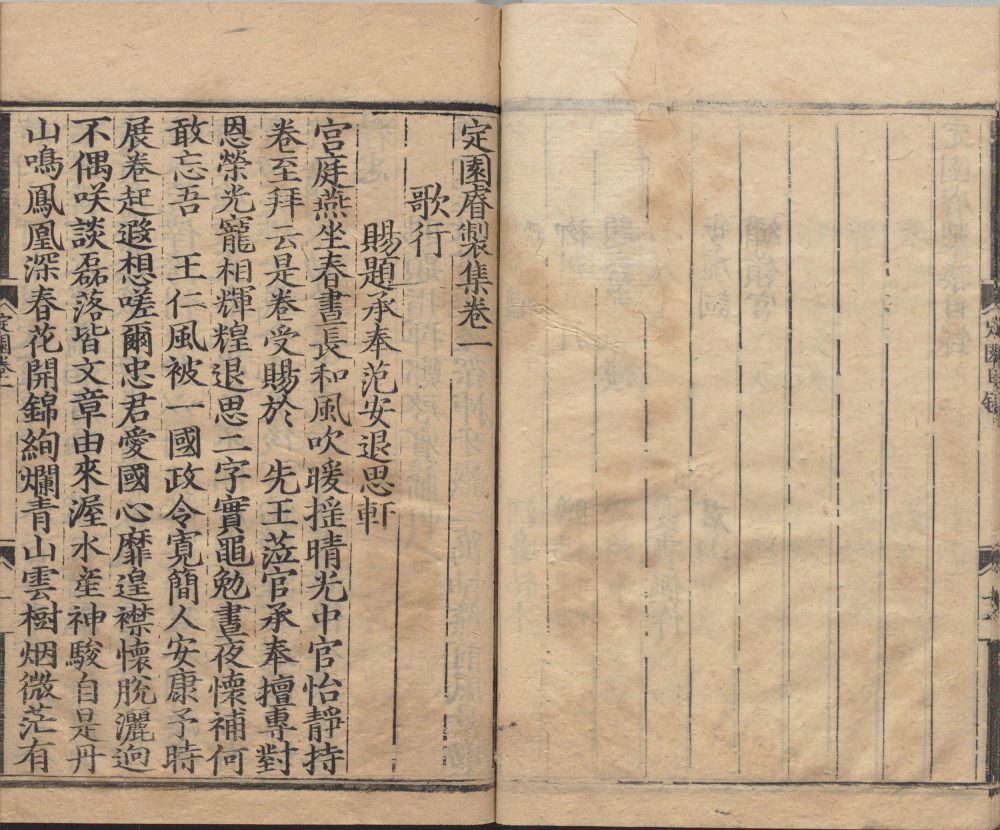 定園睿製集卷一
歌行
賜題承奉范安退思軒
宮庭燕坐春晝長和風吹暖揺晴光中官怡靜持
卷至拜云是卷受賜於　先王蒞官承奉擅專對
恩榮光寵相輝煌退思二字實黽勉晝夜懐補何
敢忘吾　王仁風被一國政令寛簡人安康予時
展卷起遐想嗟爾忠君愛國心靡遑襟懷脫灑迥
不偶咲談磊落皆文章由來渥水産神駿自是丹
山鳴鳳凰深春花開錦絢爛青山雲樹烟微茫有